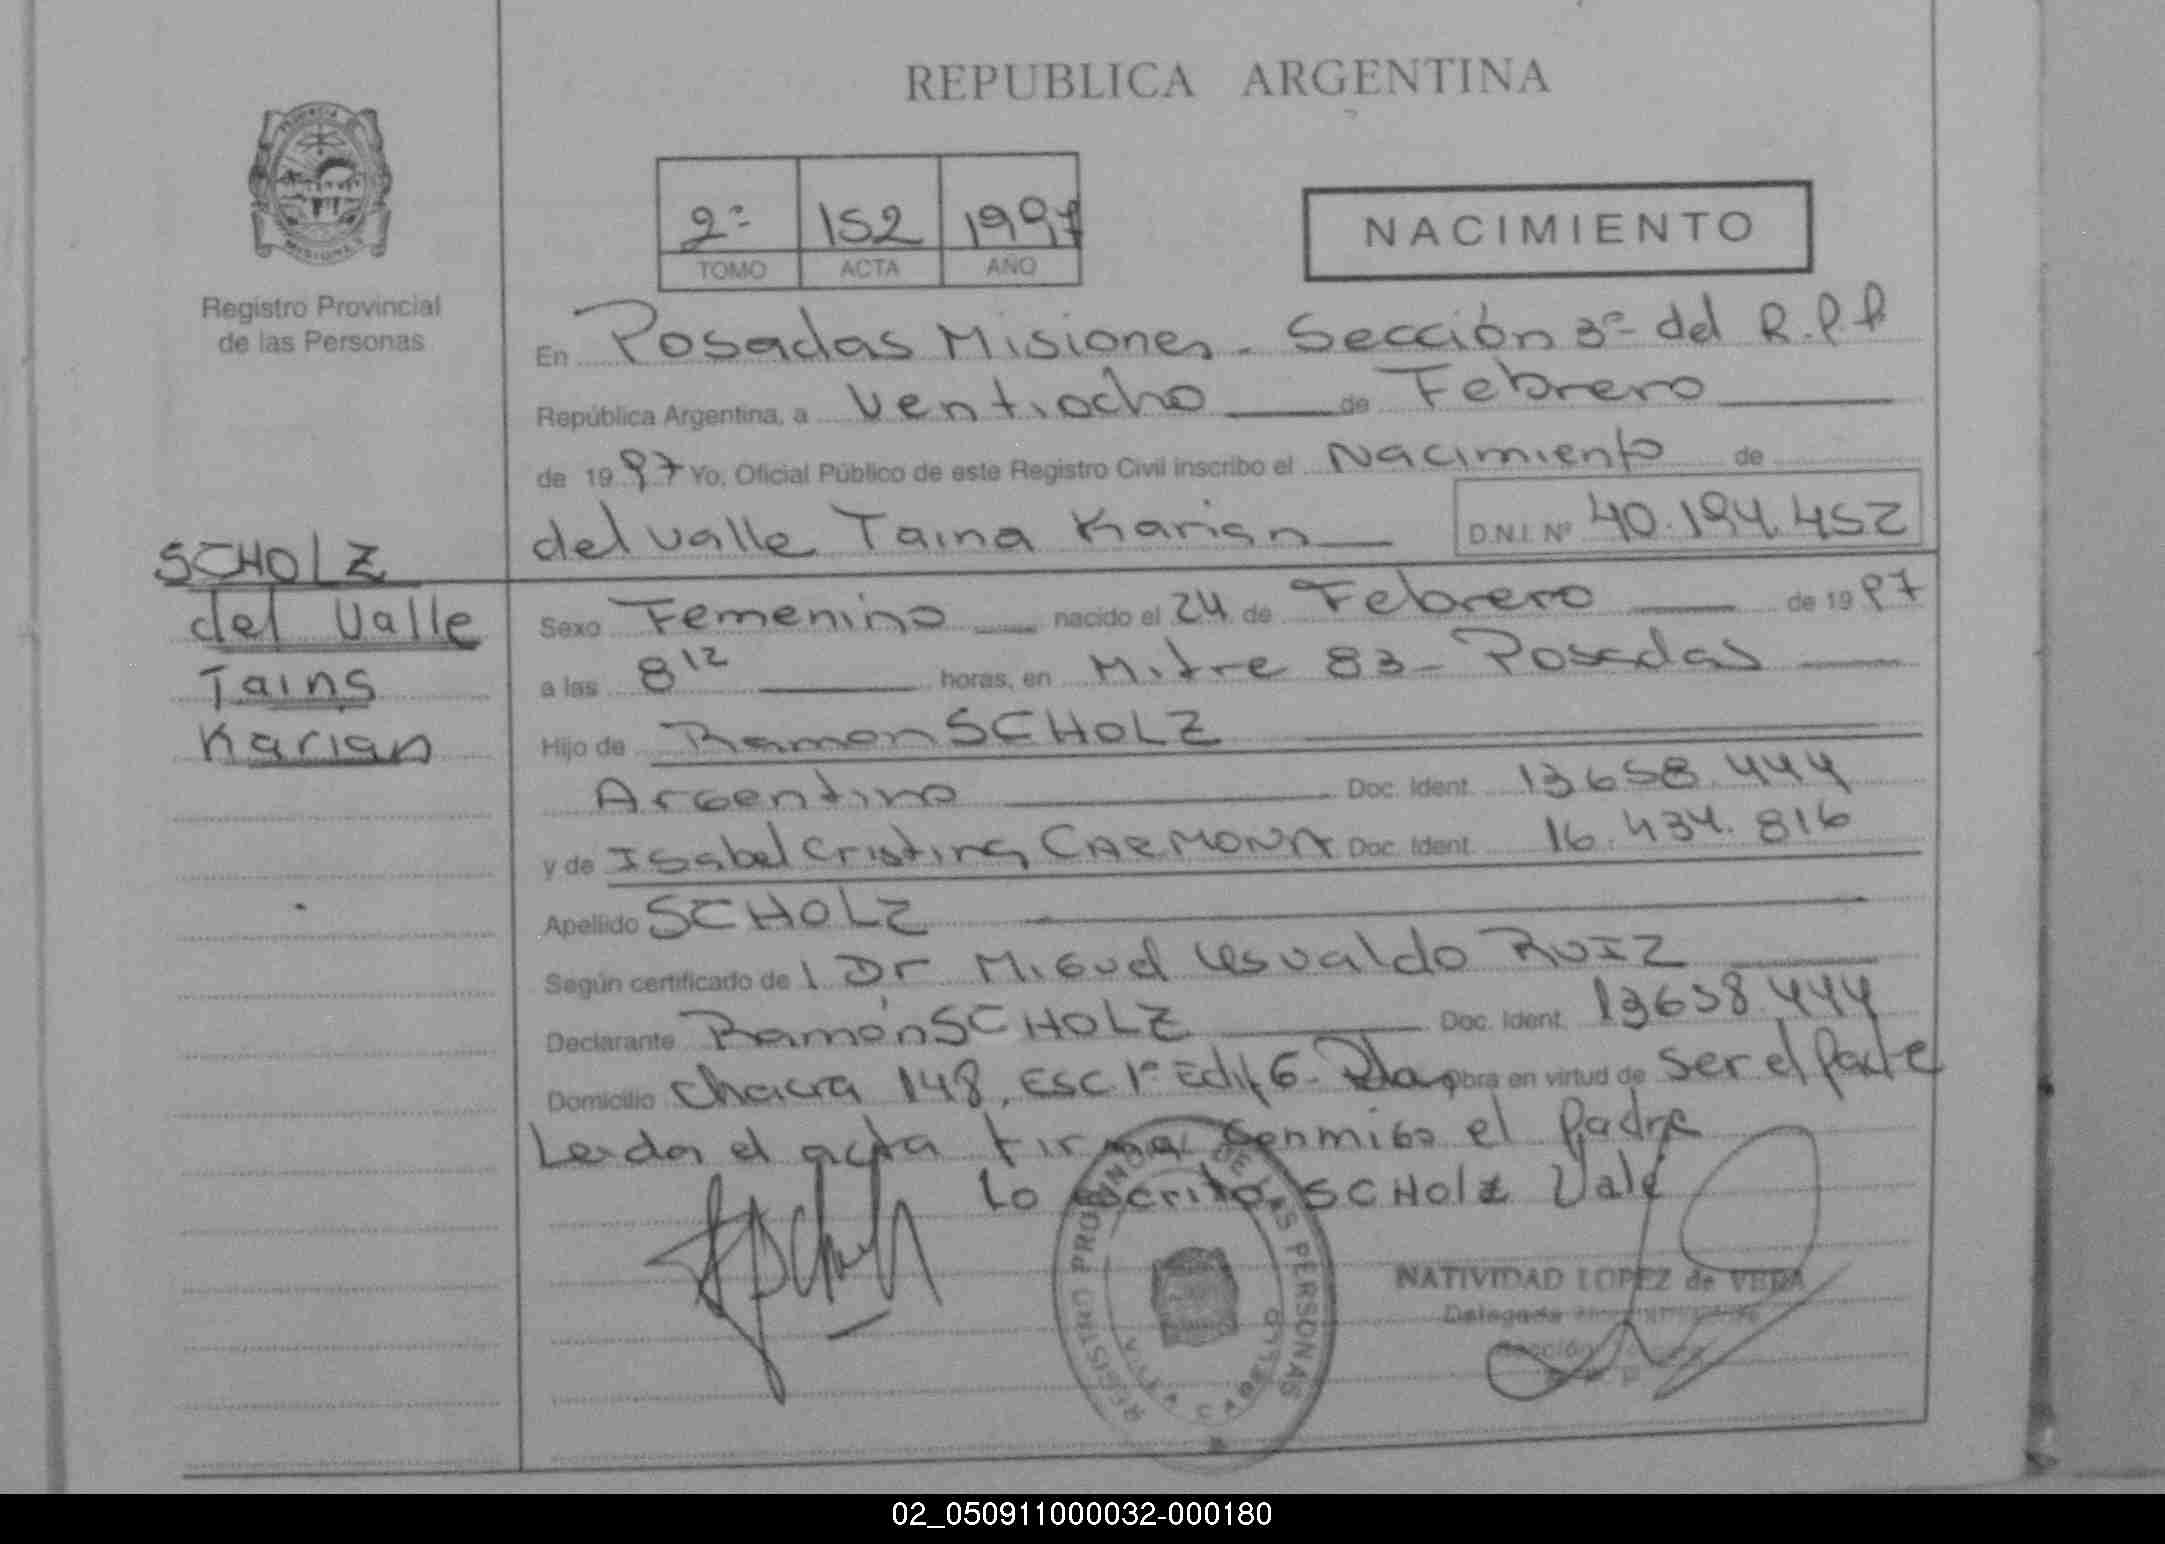 REPUBLICA ARGENTINA
2º 152 1997
TOMO ACTA AÑO
NACIMIENTO
Registro Provincial
de las Personas
En Posadas Misiones. Sección 3º del R.P.P
República Argentina, a Ventiocho de Febrero
de 1997 Yo, Oficial Público de este Registro Civil inscribo el Nacimiento de
del Valle Taina Karian D.N.I. Nº 40.194.452
SCHOLZ
del Valle
Taina
Karian
Sexo Femenino nacido el 24 de Febrero de 1997
a las 8 12 horas, en Mitre 83 - Posadas
Hijo de Ramon SCHOLZ
Argentino Doc. Ident. 13658.444
y de Isabel Cristina CARMONA Doc. Ident. 16.434.816
Apellido SCHOLZ
Según certificado de Dr Miguel Osvaldo RUIZ
Declarante Ramón SCHOLZ Doc. Ident. 13658.444
Domicilio Chacra 148, Esc. 1º Edif 6 - Obra en virtud de ser el Padre
Leida el acta firma conmigo el Padre
Lo escrito SCHOLZ Vale
REGISTRO PROVINCIAL DE LAS PERSONAS
NATIVIDAD LOPEZ de VERA
Delegada
Sección
02_050911000032-000180